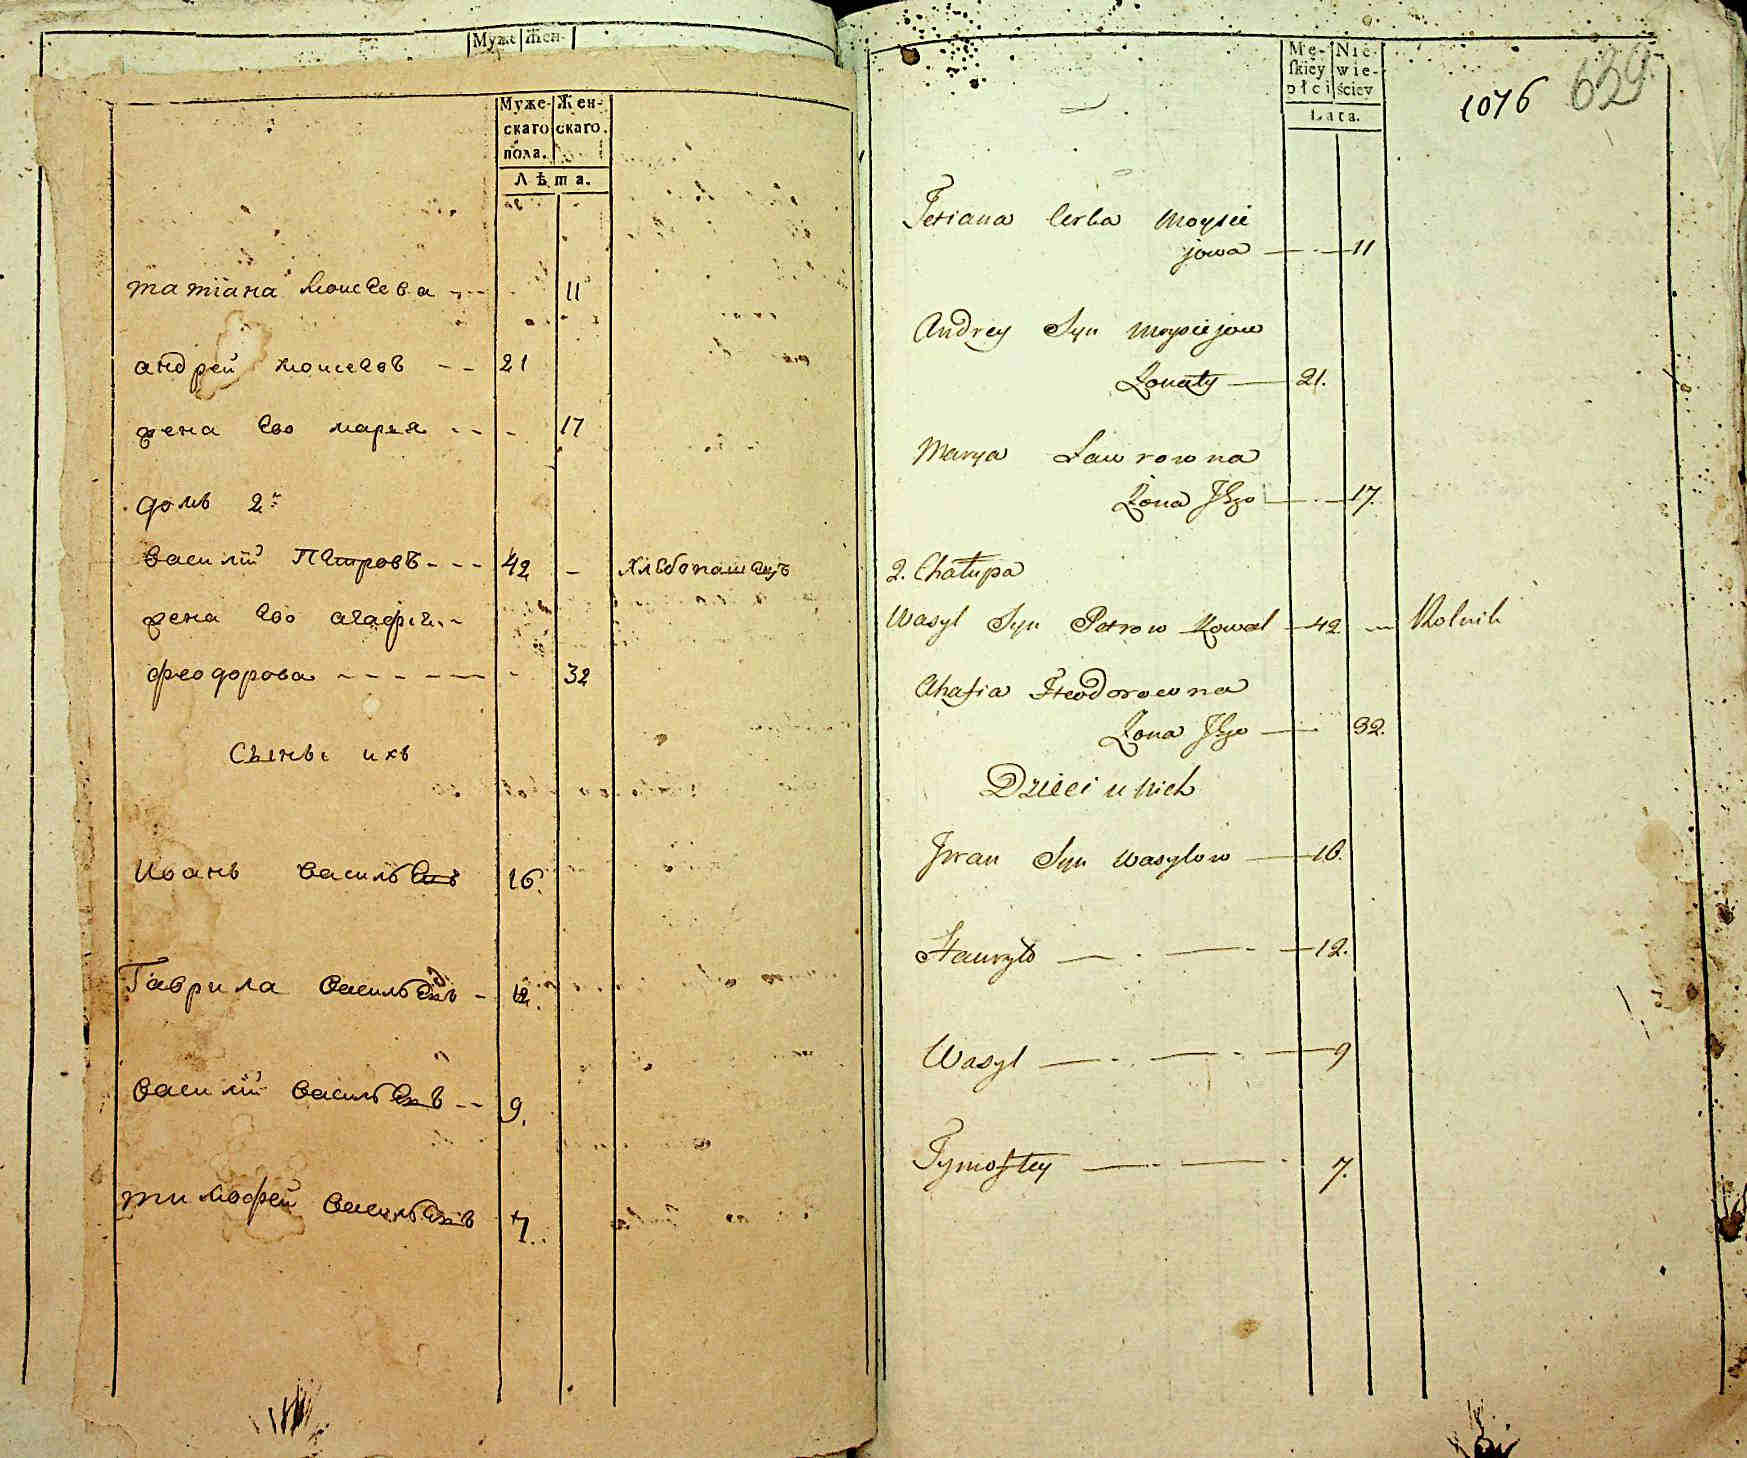 Муже Жен-
Муже- Жен-
скаго скаго.
пола.
Лѣта.
татіана моисѣева 11
андрей моисеевъ 21
жена Ево марья 17
домъ 2й
василій Петровъ 42 Хлебопашецъ
жена Ево агафия
феодорова 32
Сыны ихъ
Иванъ васильевъ 16.
Гаврила васильевъ 12.
василій васильевъ 9.
тимофей васильевъ 7.
Mę- Nie-
skiey wie-
płci ściey
Lata.
1076 639
Tetiana Corka Moysie
jowa 11
Andrey Syn Moysiejow
21.
Marya Lawrowna
Żona Jego 17.
2. Chałupa
Wasyl Syn Petrow Kowal 42 Rolnik
Ahafia Fteodorowna
Żona Jego 32.
Dzieci u Nich
Jwan Syn Wasylow 16.
Hawryło 12.
Wasyl 9
Tymoftey 7.